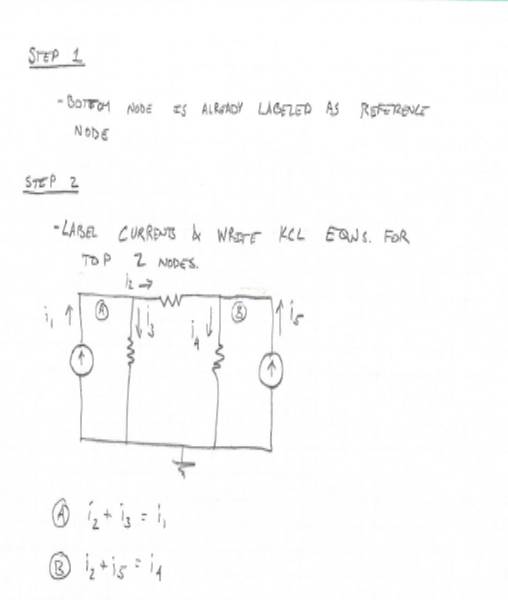 STEP 1
- BOTTOM NODE IS ALREADY LABELED AS REFERENCE
NODE
STEP 2
- LABEL CURRENTS & WRITE KCL EQNS. FOR
TOP 2 NODES.
i₂ →
i₁ ↑ Ⓐ ↓ i₃ i₄ ↓ Ⓑ ↑ i₅
Ⓐ i₂ + i₃ = i₁
Ⓑ i₂ + i₅ = i₄